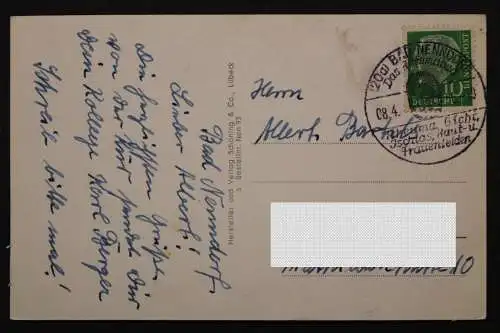 Bad Nenndorf.
Lieber Albert!
Die herzlichsten Grüße
von der Kur sendet Dir
Dein Kollege Karl Berger
Schreib bitte mal!
Hersteller und Verlag Schöning & Co., Lübeck
Herrn
Albert
10
(20a) BAD NENNDORF
Das
08.4.
Rheuma, Gicht,
Ischias, Haut- u.
Frauenleiden
10
DEUTSCHE
BUNDESPOST